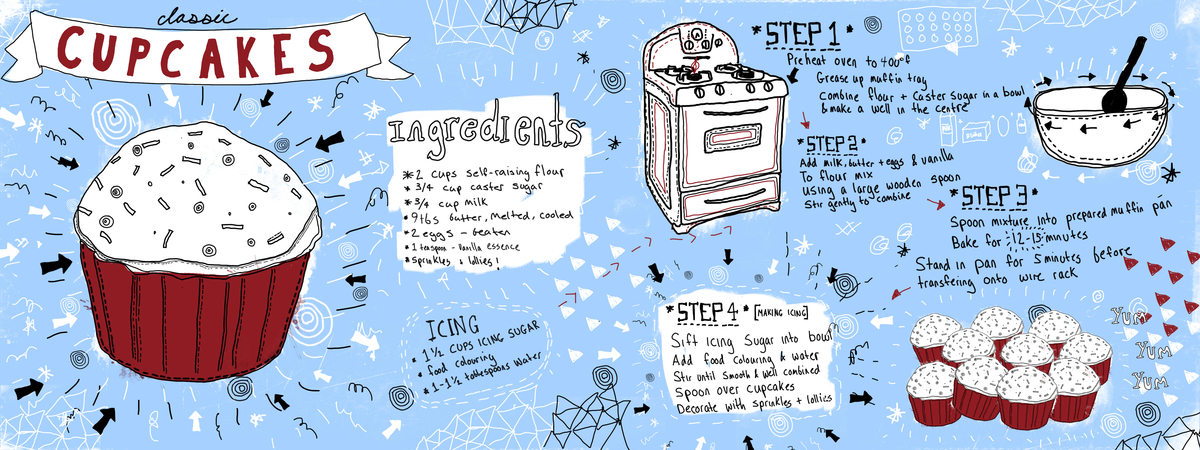 classic
CUPCAKES
Ingredients
*2 cups self-raising flour
* 3/4 cup caster sugar
* 3/4 cup milk
* 9tbs butter, melted, cooled
*2 eggs - beaten
*1 teaspoon - vanilla essence
*sprinkles & lollies!
ICING
* 1½ CUPS ICING SUGAR
* food colouring
* 1-1½ tablespoons water
*STEP 1*
Preheat oven to 400°f
Grease up muffin tray
Combine flour + caster sugar in a bowl
& make a well in the centre
*STEP 2*
Add milk, butter + eggs & vanilla
To flour mix
Using a large wooden spoon
Stir gently to combine
*STEP 3*
Spoon mixture into prepared muffin pan
Bake for 12-15 minutes
Stand in pan for 5 minutes before
transfering onto wire rack
*STEP 4* [MAKING ICING]
Sift icing sugar into bowl
Add food colouring & water
Stir until smooth & well combined
Spoon over cupcakes
Decorate with sprinkles + lollies
Yum
Yum
Yum